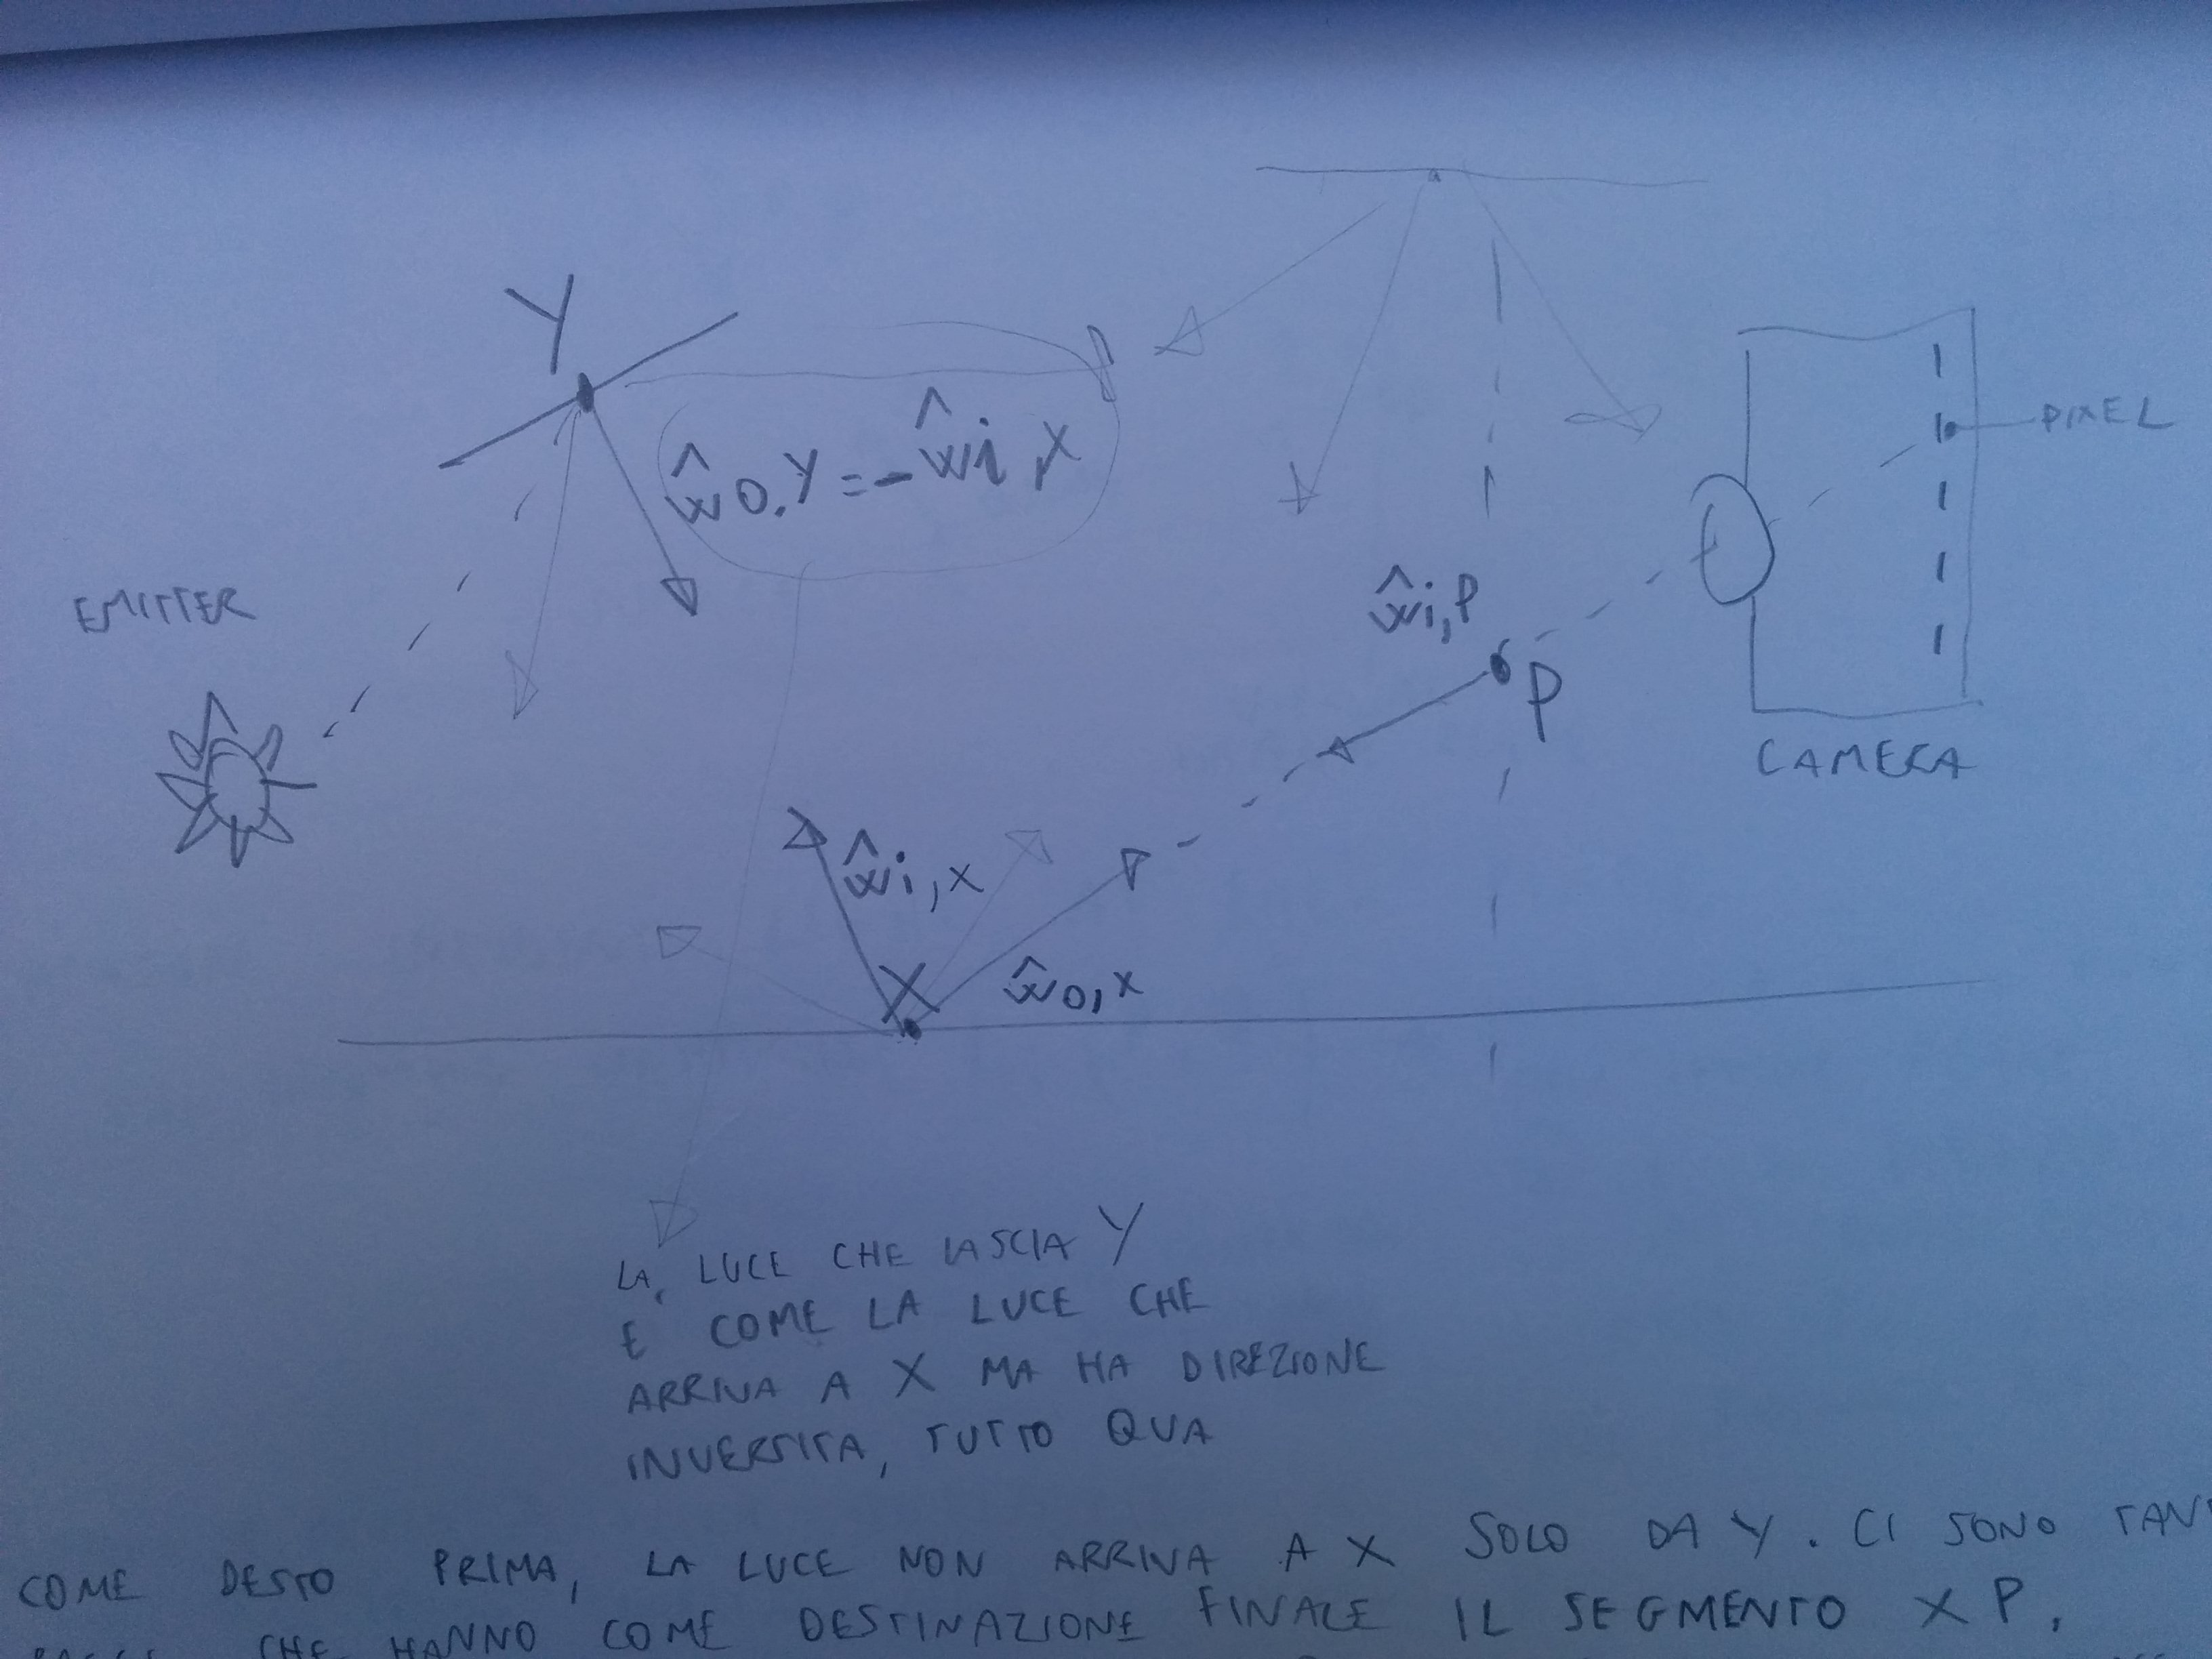 Y
ŵo,Y = -ŵi,X
PIXEL
EMITTER
ŵi,P
P
CAMERA
ŵi,x
X
ŵo,x
LA LUCE CHE LASCIA Y
E' COME LA LUCE CHE
ARRIVA A X MA HA DIREZIONE
INVERTITA, TUTTO QUA
COME DETTO PRIMA, LA LUCE NON ARRIVA A X SOLO DA Y. CI SONO TAN
CHE HANNO COME DESTINAZIONE FINALE IL SEGMENTO XP.